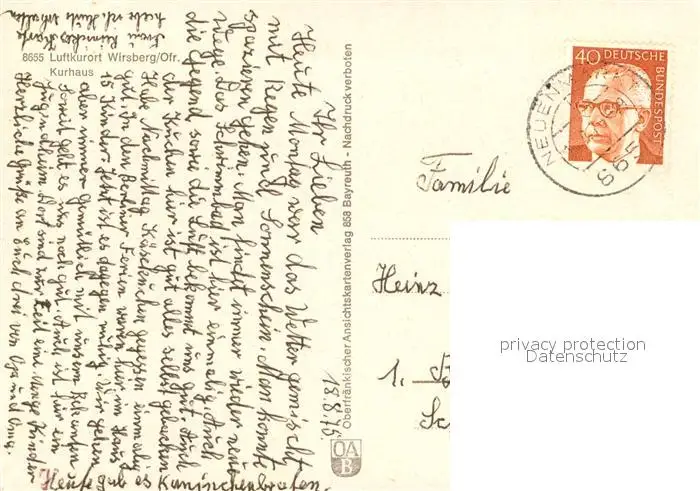 8655 Luftkurort Wirsberg/Ofr.
Kurhaus
18.8.75
Ihr Lieben
Heute Montag war das Wetter gemischt
mit Regen und Sonnenschein. Man konnte
spazieren gehen. Man findet immer wieder neue
Wege. Das Schwimmbad ist hier einmalig. Auch
die Gegend sowie die Luft bekommt uns gut. Auch
der Kuchen hier ist gut alles selbst gebacken
Habe Nachmittag Käsekuchen gegessen einmalig
gut. In den Berliner Ferien waren hier im Haus
15 Kinder. Jetzt ist es dagegen ruhig. Wir gehen
aber immer gemütlich mit unsern Bekannten
Soweit geht es uns noch gut. Auch ist hier ein
Jugendheim Dort sind zur Zeit eine Menge Kinder
Herzliche Grüße an Euch drei von Opa und Oma.
Heute gab es Kaninchenbraten.
Frau Karte
habe ich Heute erhalten
Oberfränkischer Ansichtskartenverlag 858 Bayreuth - Nachdruck verboten
OA
B
40 DEUTSCHE
BUNDESPOST
NEUENMARKT
8651
Familie
Heinz
1.
privacy protection
Datenschutz